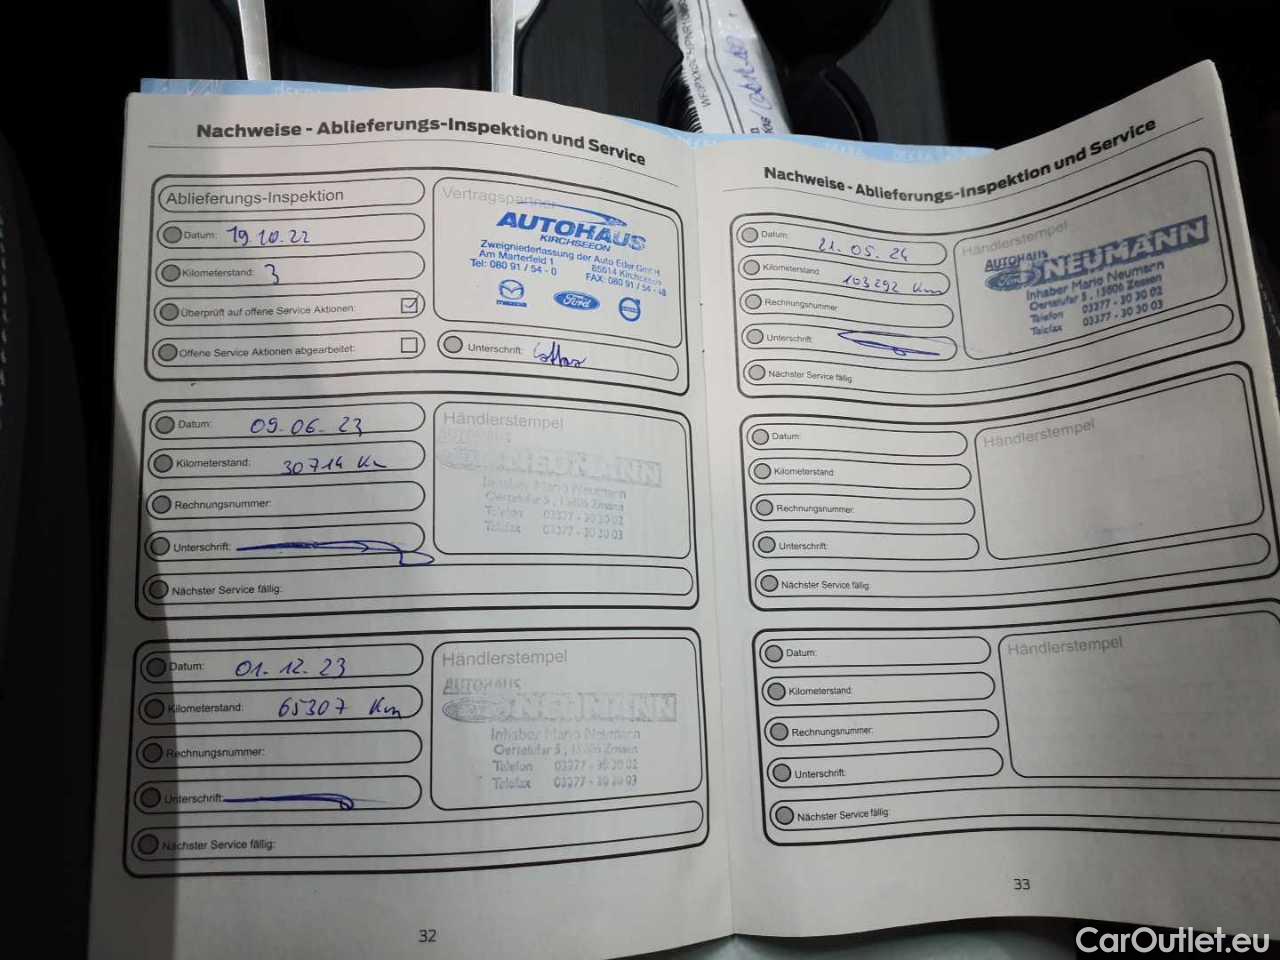 Nachweise - Ablieferungs-Inspektion und Service
Ablieferungs-Inspektion
Datum: 19.10.22
Kilometerstand: 3
Überprüft auf offene Service Aktionen:
Offene Service Aktionen abgearbeitet:
Vertragspartner
AUTOHAUS
KIRCHSEEON
Zweigniederlassung der Auto Eder GmbH
Am Marterfeld 1 85614 Kirchseeon
Tel: 080 91 / 54 - 0 FAX: 080 91 / 54 - 48
mazda Ford
Unterschrift:
Datum: 09.06.23
Kilometerstand: 30714 Km
Rechnungsnummer:
Unterschrift:
Nächster Service fällig:
Händlerstempel
AUTOHAUS
NEUMANN
Inhaber Mario Neumann
Telefon 03377 - 30 30 02
Telefax 03377 - 30 30 03
Datum: 01.12.23
Kilometerstand: 65307 Km
Rechnungsnummer:
Unterschrift:
Nächster Service fällig:
Händlerstempel
AUTOHAUS
NEUMANN
Inhaber Mario Neumann
Telefon 03377 - 30 30 02
Telefax 03377 - 30 30 03
32
Nachweise - Ablieferungs-Inspektion und Service
Datum: 21.05.24
Kilometerstand: 103292 Km
Rechnungsnummer:
Unterschrift:
Nächster Service fällig:
Händlerstempel
AUTOHAUS
NEUMANN
Inhaber Mario Neumann
Telefon 03377 - 30 30 02
Telefax 03377 - 30 30 03
Datum:
Kilometerstand:
Rechnungsnummer:
Unterschrift:
Nächster Service fällig:
Händlerstempel
Datum:
Kilometerstand:
Rechnungsnummer:
Unterschrift:
Nächster Service fällig:
Händlerstempel
33
CarOutlet.eu